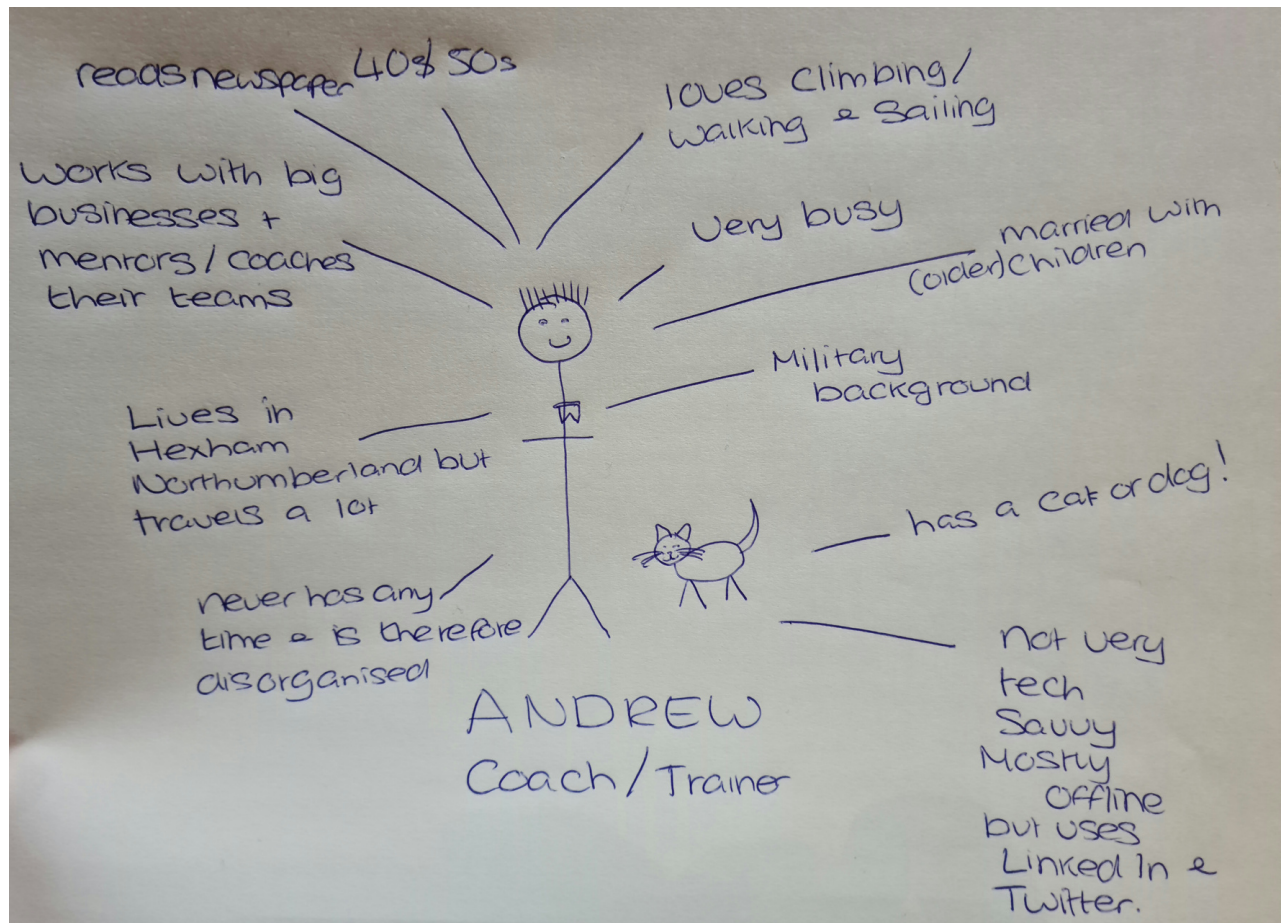 reads newspaper
40s/50s
loves climbing/
walking & sailing
works with big
businesses +
mentors/coaches
their teams
very busy
married with
(older) children
Military
background
Lives in
Hexham
Northumberland but
travels a lot
has a cat or dog!
never has any
time & is therefore
disorganised
not very
tech
savvy
Mostly
offline
but uses
Linked In &
Twitter.
ANDREW
Coach/Trainer